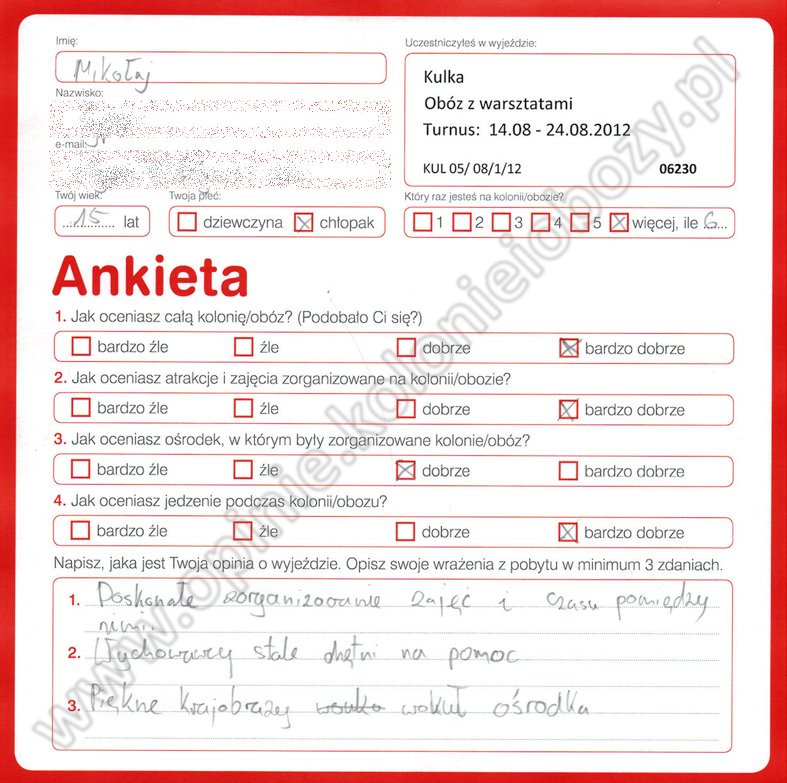 Imię:
Mikołaj
Nazwisko:
e-mail:
Twój wiek:
15 lat
Twoja płeć:
dziewczyna chłopak
Uczestniczyłeś w wyjeździe:
Kulka
Obóz z warsztatami
Turnus: 14.08 - 24.08.2012
KUL 05/ 08/1/12 06230
Który raz jesteś na kolonii/obozie?
1 2 3 4 5 więcej, ile 6...
Ankieta
1. Jak oceniasz całą kolonię/obóz? (Podobało Ci się?)
bardzo źle źle dobrze bardzo dobrze
2. Jak oceniasz atrakcje i zajęcia zorganizowane na kolonii/obozie?
bardzo źle źle dobrze bardzo dobrze
3. Jak oceniasz ośrodek, w którym były zorganizowane kolonie/obóz?
bardzo źle źle dobrze bardzo dobrze
4. Jak oceniasz jedzenie podczas kolonii/obozu?
bardzo źle źle dobrze bardzo dobrze
Napisz, jaka jest Twoja opinia o wyjeździe. Opisz swoje wrażenia z pobytu w minimum 3 zdaniach.
1. Doskonałe zorganizowanie zajęć i czasu pomiędzy
nimi.
2. Wychowawcy stale chętni na pomoc
3. Piękne krajobrazy wokuł ośrodka
www.opinie.kolonieiobozy.pl